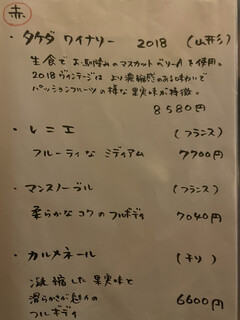 赤
・タケダ ワイナリー 2018 (山形)
生食でお馴染みのマスカットベリーAを使用。
2018ヴィンテージは より凝縮感のある味わいで
パッションフルーツの様な果実味が特徴。
8580円
・レニエ (フランス)
フルーティな ミディアム 7700円
・マンスノーブル (フランス)
柔らかなコクのフルボディ 7040円
・カルメネール (チリ)
凝縮した果実味と
滑らかさが魅力の
フルボディ 6600円